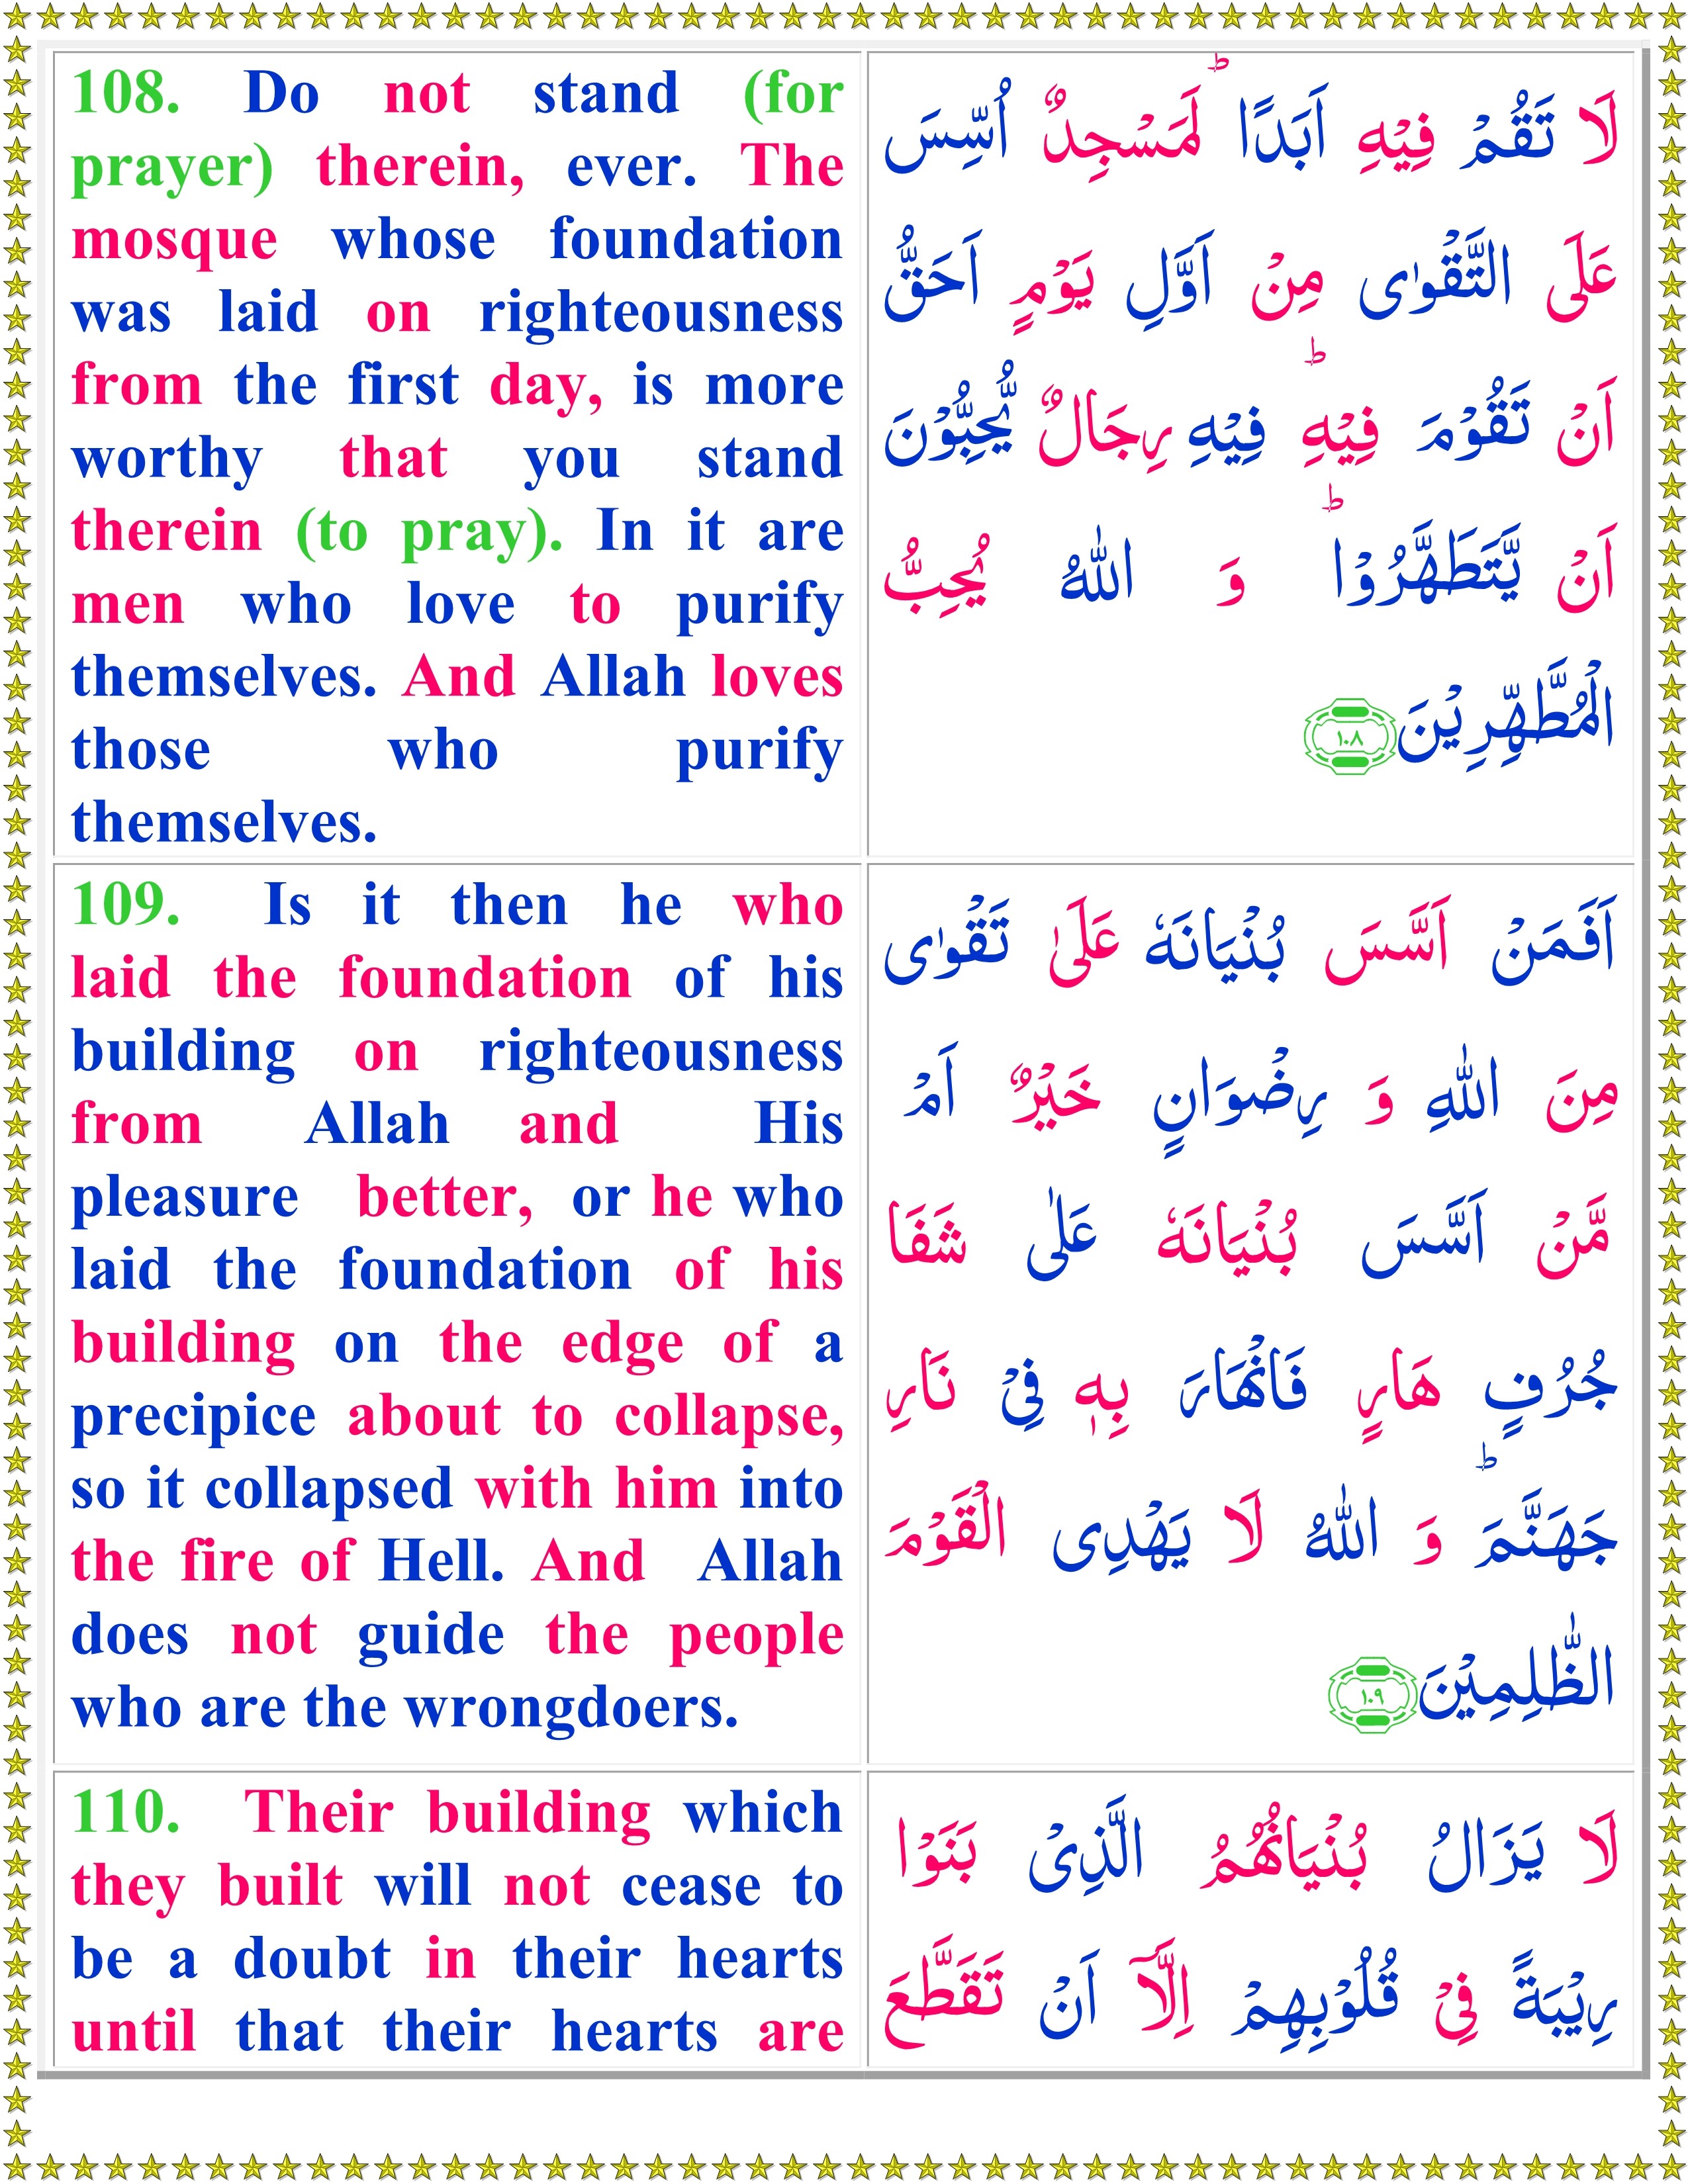 108. Do not stand (for
prayer) therein, ever. The
mosque whose foundation
was laid on righteousness
from the first day, is more
worthy that you stand
therein (to pray). In it are
men who love to purify
themselves. And Allah loves
those who purify
themselves.
لَا تَقُمْ فِيْهِ اَبَدًا ؕ لَمَسْجِدٌ اُسِّسَ
عَلَى التَّقْوٰى مِنْ اَوَّلِ يَوْمٍ اَحَقُّ
اَنْ تَقُوْمَ فِيْهِ ؕ فِيْهِ رِجَالٌ يُّحِبُّوْنَ
اَنْ يَّتَطَهَّرُوْا ؕ وَ اللّٰهُ يُحِبُّ
الْمُطَّهِّرِيْنَ ۱۰۸
109. Is it then he who
laid the foundation of his
building on righteousness
from Allah and His
pleasure better, or he who
laid the foundation of his
building on the edge of a
precipice about to collapse,
so it collapsed with him into
the fire of Hell. And Allah
does not guide the people
who are the wrongdoers.
اَفَمَنْ اَسَّسَ بُنْيَانَهٗ عَلٰى تَقْوٰى
مِنَ اللّٰهِ وَ رِضْوَانٍ خَيْرٌ اَمْ
مَّنْ اَسَّسَ بُنْيَانَهٗ عَلٰى شَفَا
جُرُفٍ هَارٍ فَانْهَارَ بِهٖ فِىْ نَارِ
جَهَنَّمَ ؕ وَ اللّٰهُ لَا يَهْدِى الْقَوْمَ
الظّٰلِمِيْنَ ۱۰۹
110. Their building which
they built will not cease to
be a doubt in their hearts
until that their hearts are
لَا يَزَالُ بُنْيَانُهُمُ الَّذِىْ بَنَوْا
رِيْبَةً فِىْ قُلُوْبِهِمْ اِلَّاۤ اَنْ تَقَطَّعَ